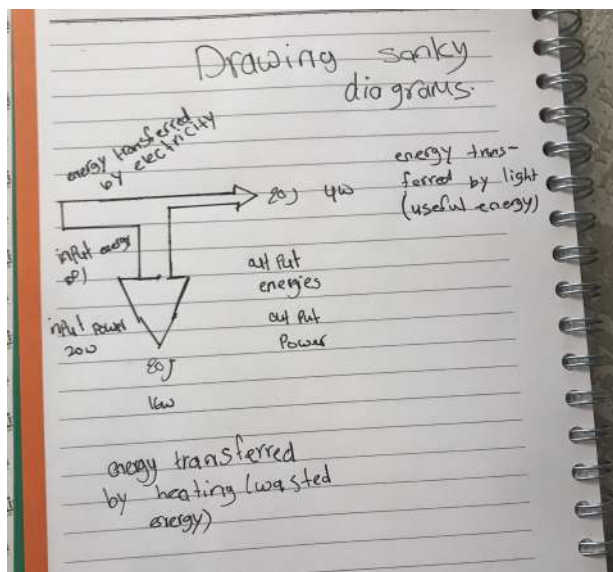 Drawing sanky
diagrams.
energy transferred
by electricity
20J 4W
energy trans-
ferred by light
(useful energy)
input energy
input power
20W
80J
16W
out put
energies
out put
Power
energy transferred
by heating (wasted
energy)